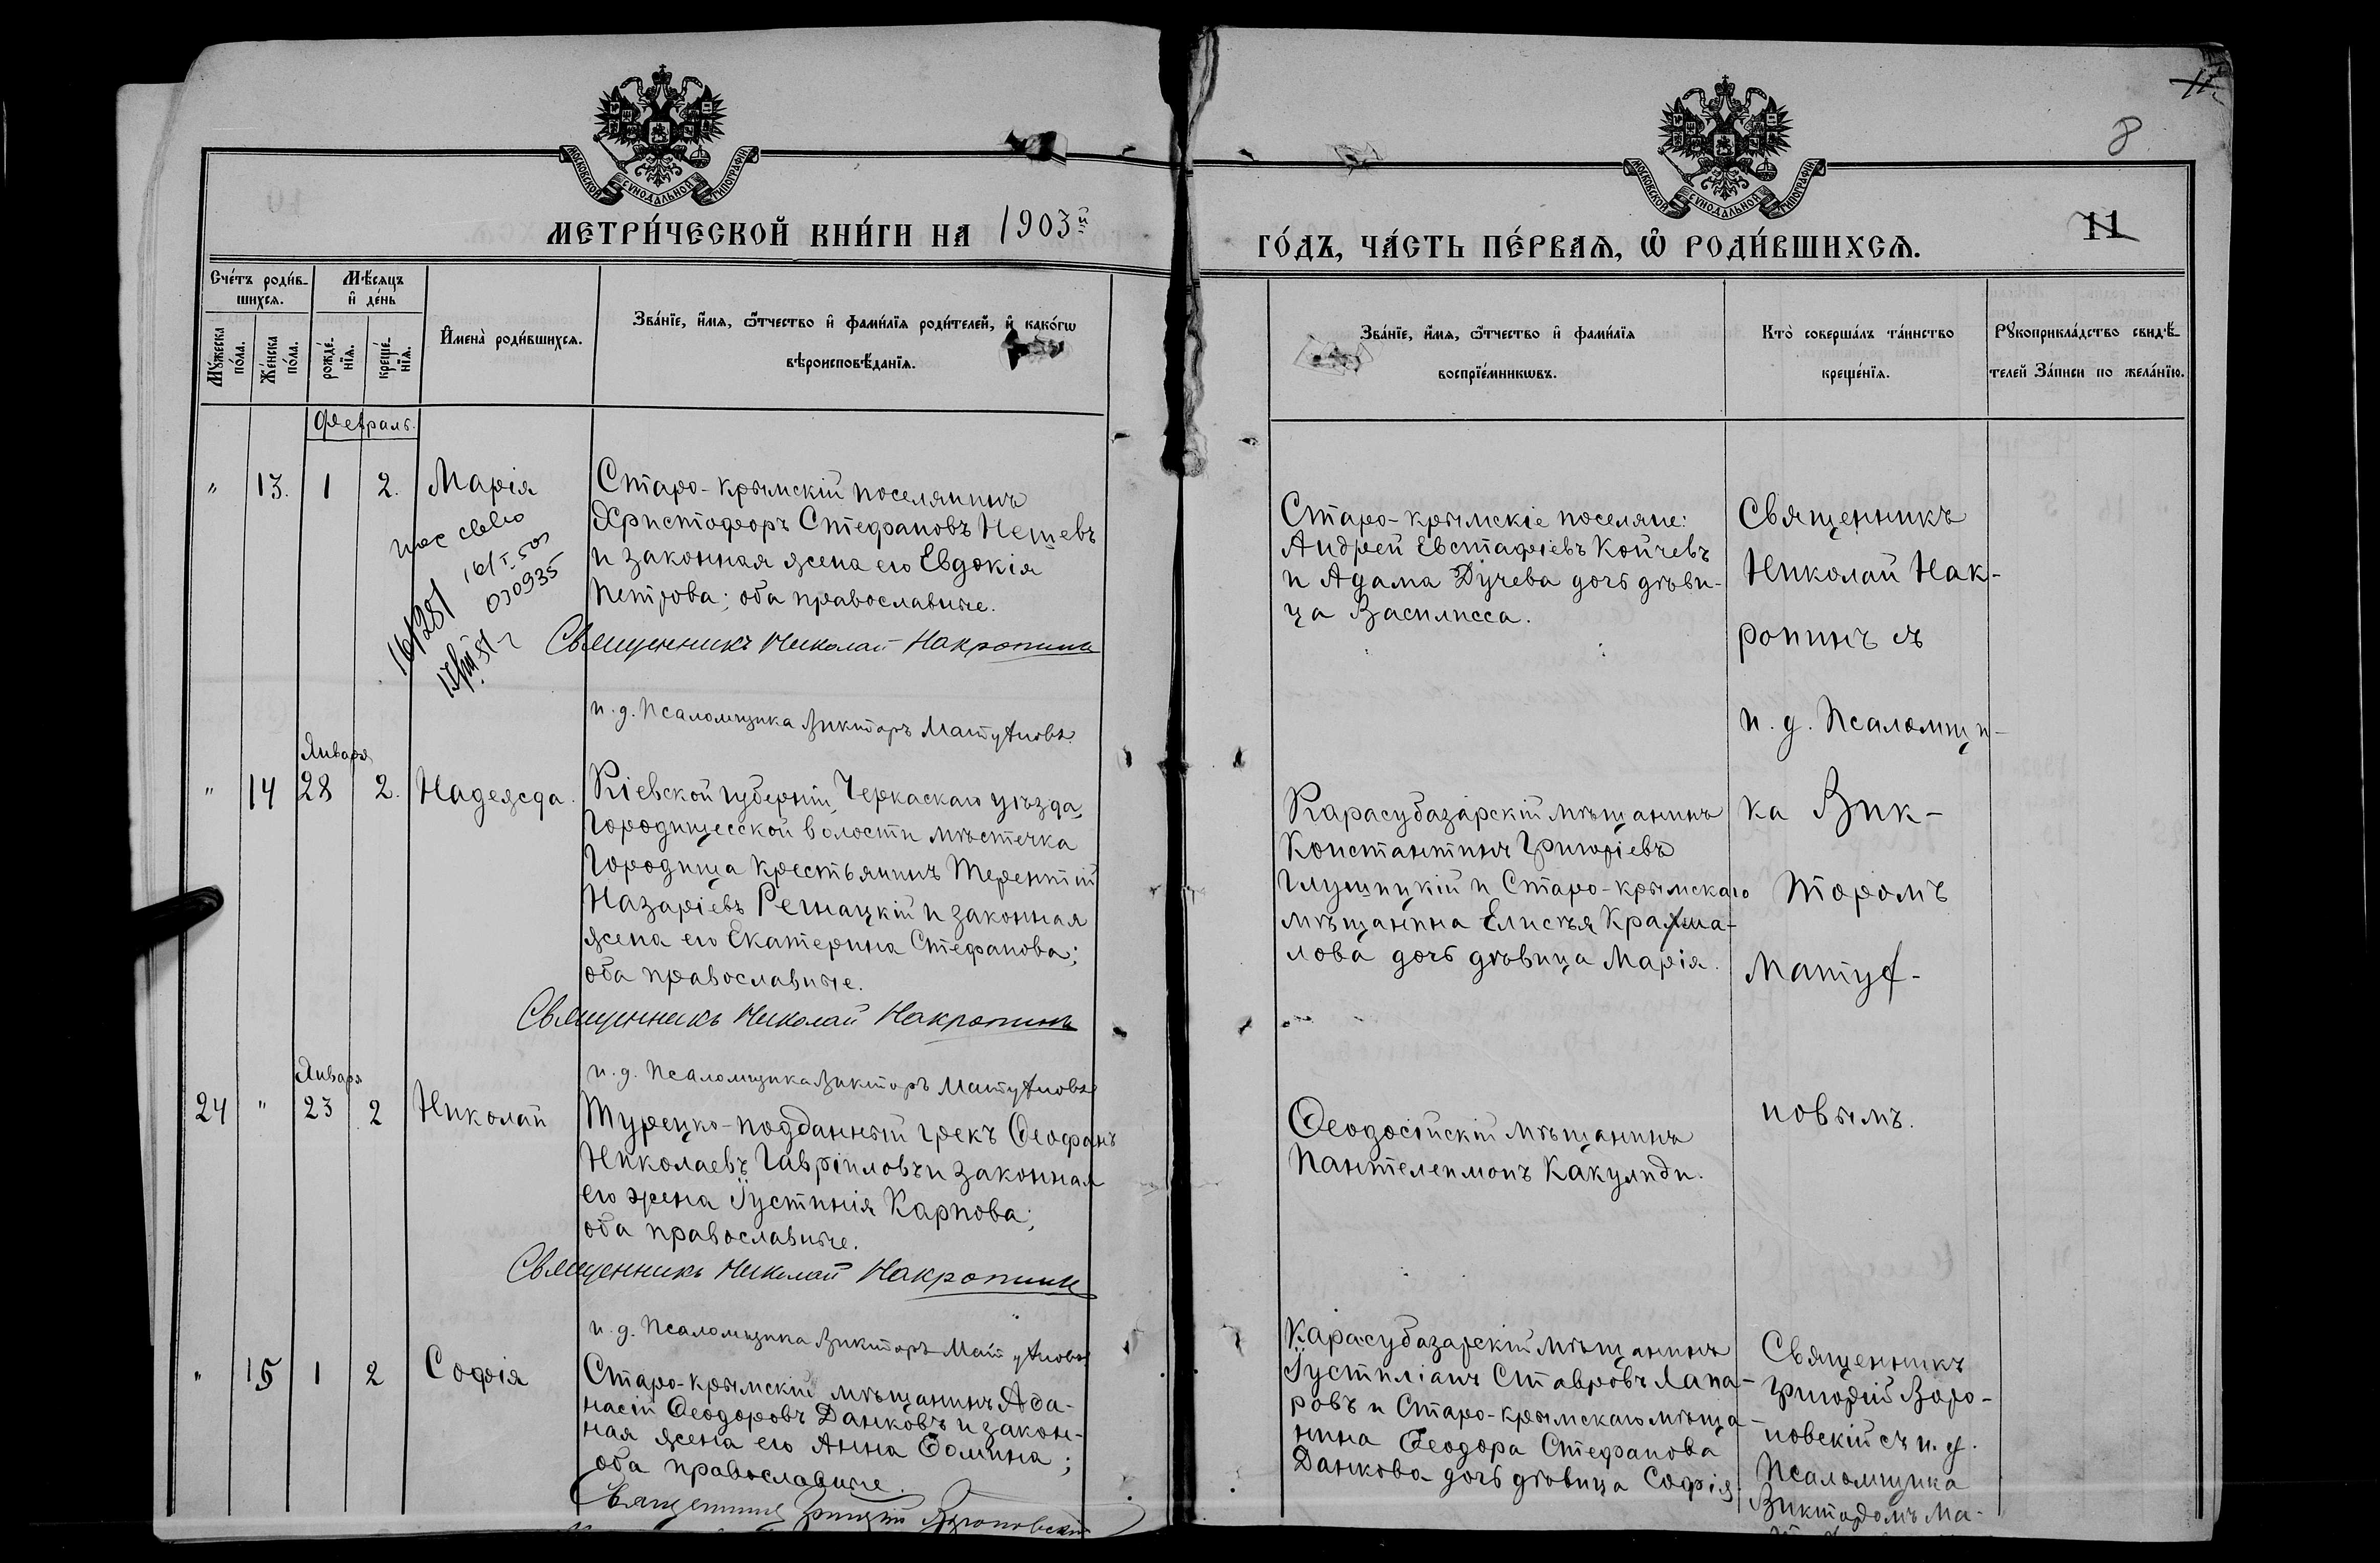 МОСКОВСКОЙ СѴНОДАЛЬНОЙ ТИПОГРАФІИ
МОСКОВСКОЙ СѴНОДАЛЬНОЙ ТИПОГРАФІИ
8
11
МЕТРИ́ЧЕСКОЙ КНИ́ГИ НА 1903й
ГО́ДЪ, ЧА́СТЬ ПЕ́РВАѦ, Ѡ҆ РОДИ́ВШИХСѦ.
Сче́тъ роди́в-
шихсѧ.
Мѣ́сѧцъ
и҆ де́нь
Мꙋ́жеска
по́ла.
Же́нска
по́ла.
рожде́-
нїѧ.
креще́-
нїѧ.
И҆мена̀ роди́вшихсѧ.
Зва́нїе, и҆́мѧ, ѻ҆́тчество и҆ фами́лїѧ роди́телей, и҆ како́гѡ
вѣроисповѣ́данїѧ.
Зва́нїе, и҆́мѧ, ѻ҆́тчество и҆ фами́лїѧ
воспрїе́мникѡвъ.
Кто̀ соверша́лъ та́инство
креще́нїѧ.
Рꙋкоприкла́дство свидѣ́-
телей за́писи по жела́нїю.
Февраль.
" 13. 1 2. Марія
Старо-крымскій поселянинъ
Христофоръ Стефановъ Нешевъ
и законная жена его Евдокія
Петрова; оба православные.
Священникъ Николай Накропинъ
и. д. Псаломщика Викторъ Матуяновъ
030935
16/281
Старо-крымскіе поселяне:
Андрей Евстафіевъ Койчевъ
и Адама Дучева дочь дѣви-
ца Василисса.
Священникъ
Николай Нак-
ропинъ съ
и. д. Псаломщи-
ка Вик-
торомъ
Матуя-
новымъ.
Января
" 14 28 2. Надежда.
Кіевской губерніи, Черкаскаго уѣзда,
Городищесской волости мѣстечка
Городища крестьянинъ Терентій
Назаріевъ Регнацкій и законная
жена его Екатерина Стефанова;
оба православные.
Священникъ Николай Накропинъ
и. д. Псаломщика Викторъ Матуяновъ
Карасубазарскій мѣщанинъ
Константинъ Григоріевъ
Глущицкій и Старо-крымскаго
мѣщанина Елисѣя
дочь дѣвица Марія.
Января
24 " 23 2 Николай
Турецко-подданный грекъ Ѳеофанъ
Николаевъ Гавріиловъ и законная
его жена Іустинія Карпова;
оба православные.
Священникъ Николай Накропинъ
и. д. Псаломщика Викторъ Матуяновъ
Ѳеодосійскій мѣщанинъ
Пантелеимонъ Какулиди.
" 15 1 2 Софія
Старо-крымскій мѣщанинъ Аѳа-
насій Ѳеодоровъ Данковъ и закон-
ная жена его Анна Ѳомина;
оба православные.
Священникъ Григорій Вороновскій
Карасубазарскій мѣщанинъ
Іустиліанъ Ставровъ Лапа-
ровъ и Старо-крымскаго мѣща-
нина Ѳеодора Стефанова
Данкова дочь дѣвица Софія.
Священникъ
Григорій Воро-
новскій съ и. д.
Псаломщика
Викторомъ Ма-